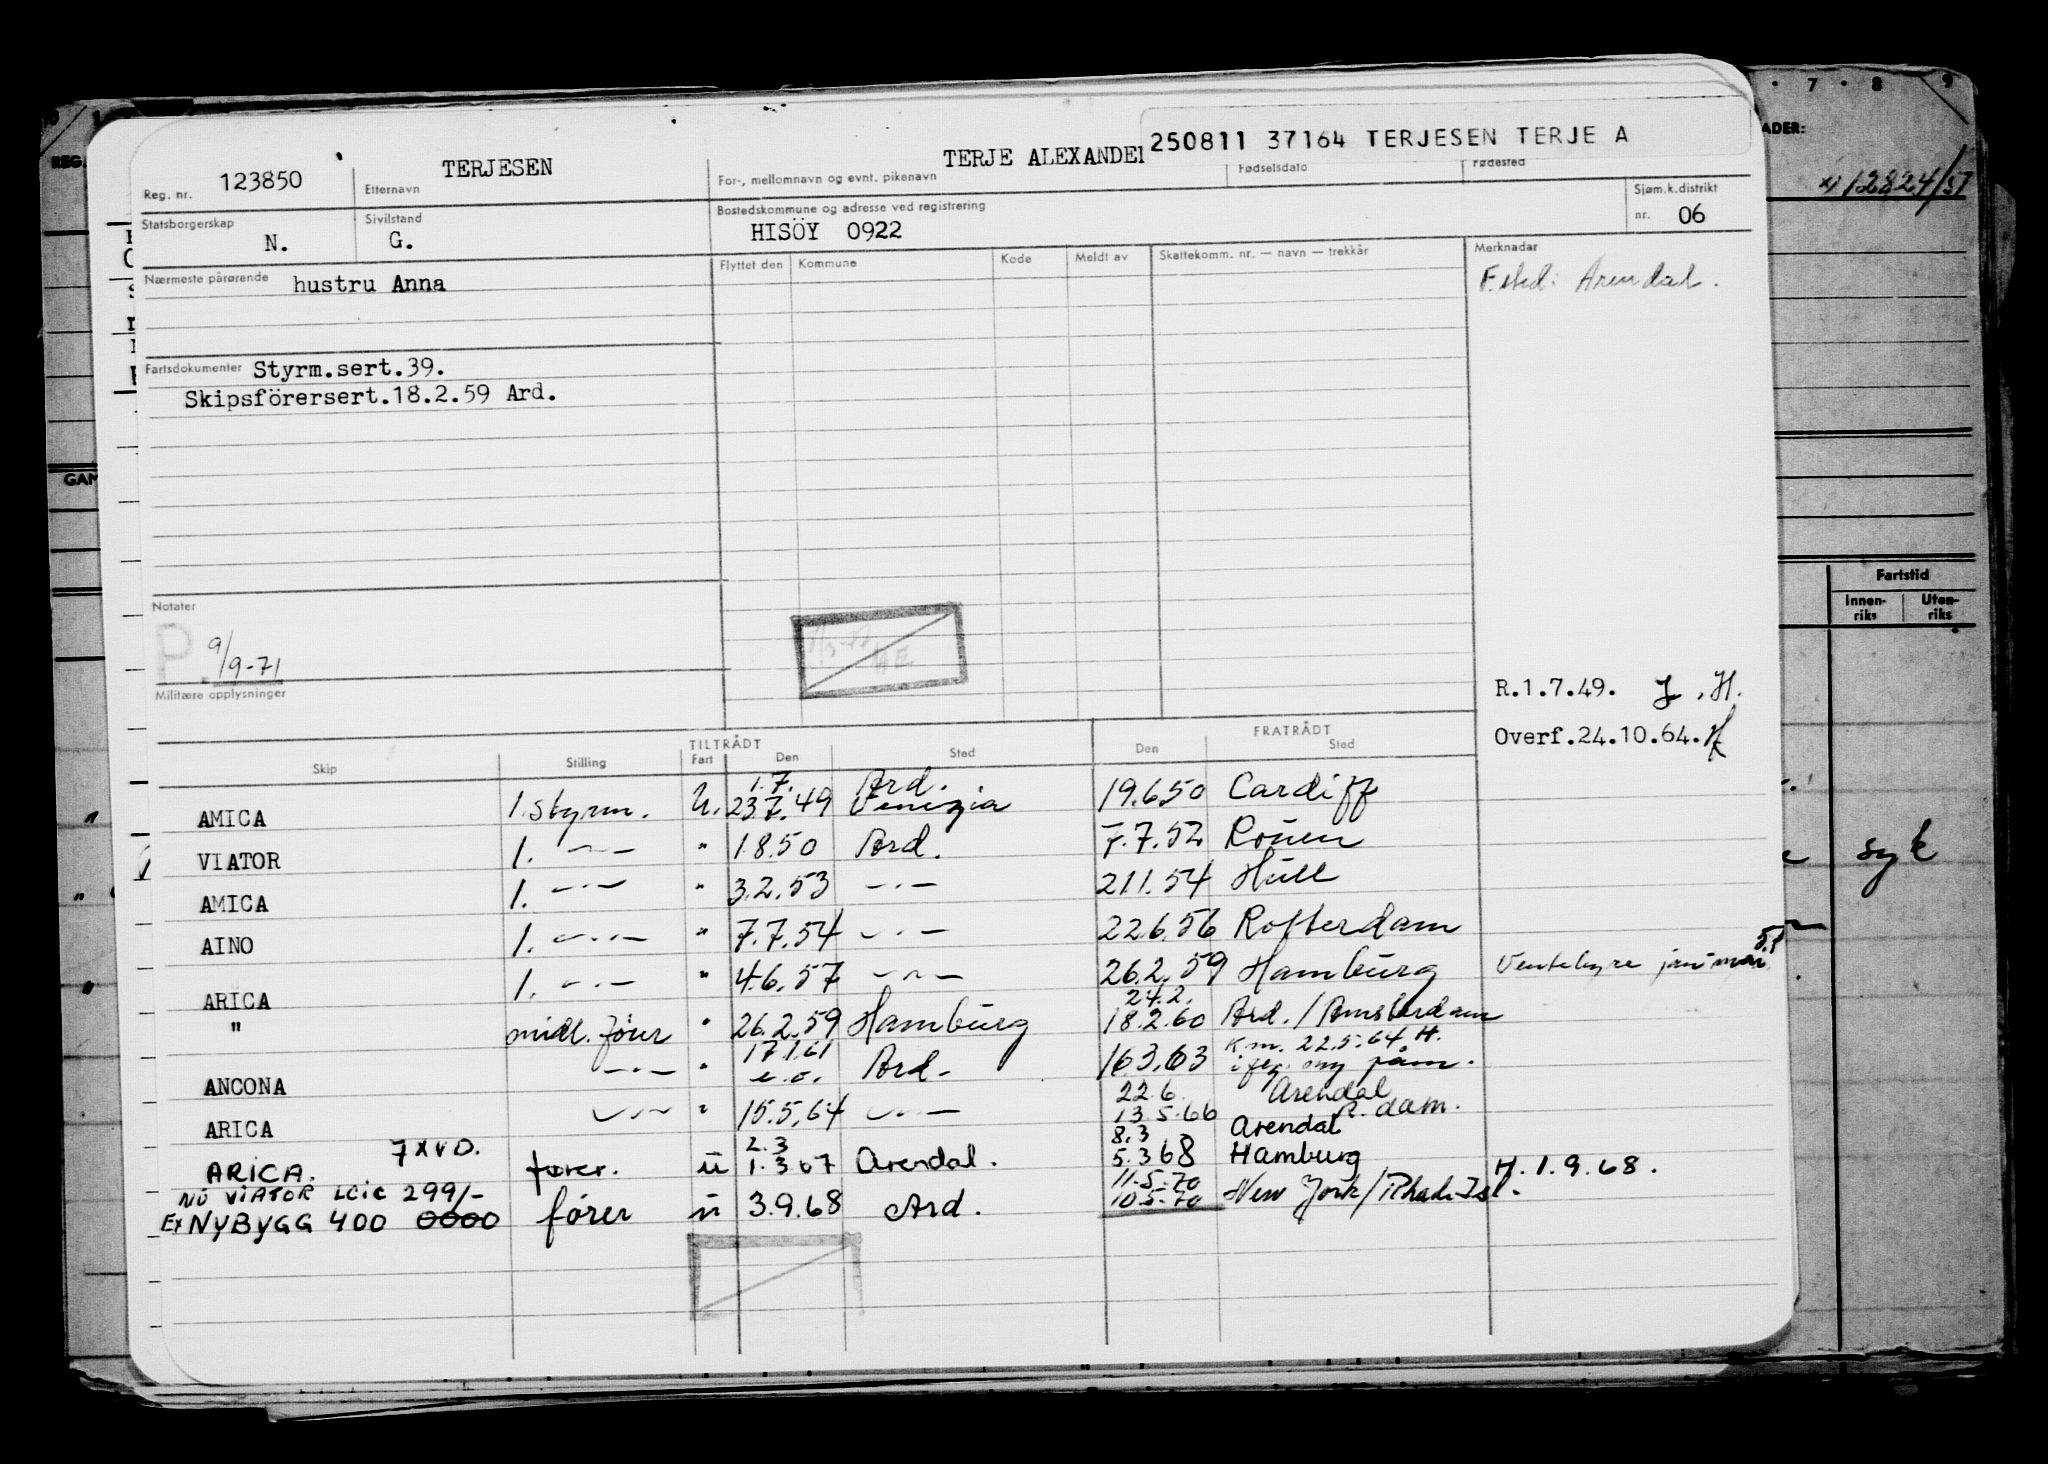 250811 37164 TERJESEN TERJE A
Reg. nr. 123850 Etternavn TERJESEN For-, mellomnavn og evnt. pikenavn TERJE ALEXANDER Fødselsdato Fødested
Statsborgerskap N. Sivilstand G. Bostedskommune og adresse ved registrering HISÖY 0922 Sjøm.k.distrikt nr. 06
Nærmeste pårørende hustru Anna Flyttet den Kommune Kode Meldt av Skattekomm. nr. — navn — trekkår Merknadar
F.sted: Arendal.
Fartsdokumenter Styrm.sert.39.
Skipsförersert.18.2.59 Ard.
Notater
P. 9/9-71
Militære opplysninger
R.1.7.49. J.H.
Overf.24.10.64. H
TILTRÅDT FRATRÅDT
Skip Stilling Fart Den Sted Den Sted
1.7. Ard.
AMICA 1.styrm. U. 23.7.49 Venezia 19.6.50 Cardiff
VIATOR 1. —"— " 1.8.50 Ard. 7.7.52 Rouen
AMICA 1. —"— " 3.2.53 —"— 2.11.54 Hull
AINO 1. —"— " 7.7.54 —"— 22.6.56 Rotterdam
ARICA 1. —"— " 4.6.57 —"— 26.2.59 Hamburg Ventehyre
24.2.
" midl. förer " 26.2.59 Hamburg 18.2.60 Ard./Amsterdam
17.1.61 K.m. 22.5.64 H.
ANCONA —"— " e.o. Ard. 16.3.63
22.6. Arendal
ARICA —"— " 15.5.64 —"— 13.5.66 R.dam.
7XVD. 2.3 8.3 Arendal
ARICA. fører. u 1.3.67 Arendal. 5.3.68 Hamburg H.1.9.68.
NÅ VIATOR LCIC 299/- 11.5.70
Ex NYBYGG 400 0000 fører u 3.9.68 Ard. 10.5.70 New York/Rhode Isl.
REG.
GAM
7 · 8 9
ADER:
x) 12824/37
Fartstid
Innen-riks Uten-riks
syk